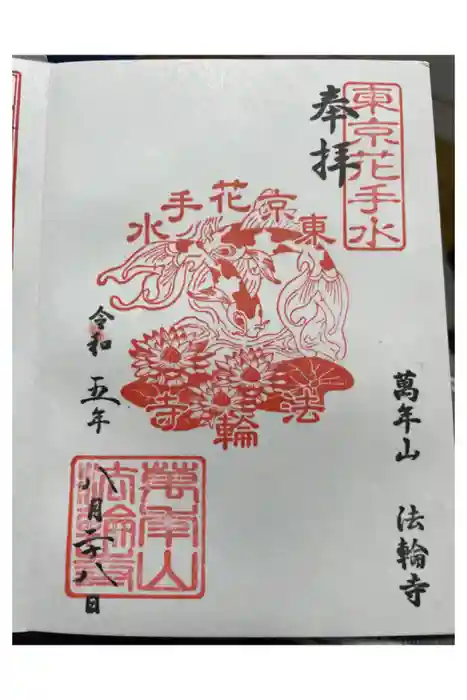 東京花手水
奉拝
萬年山 法輪寺
東京花手水
法輪寺
令和五年
八月二十八日
萬年山
法輪寺